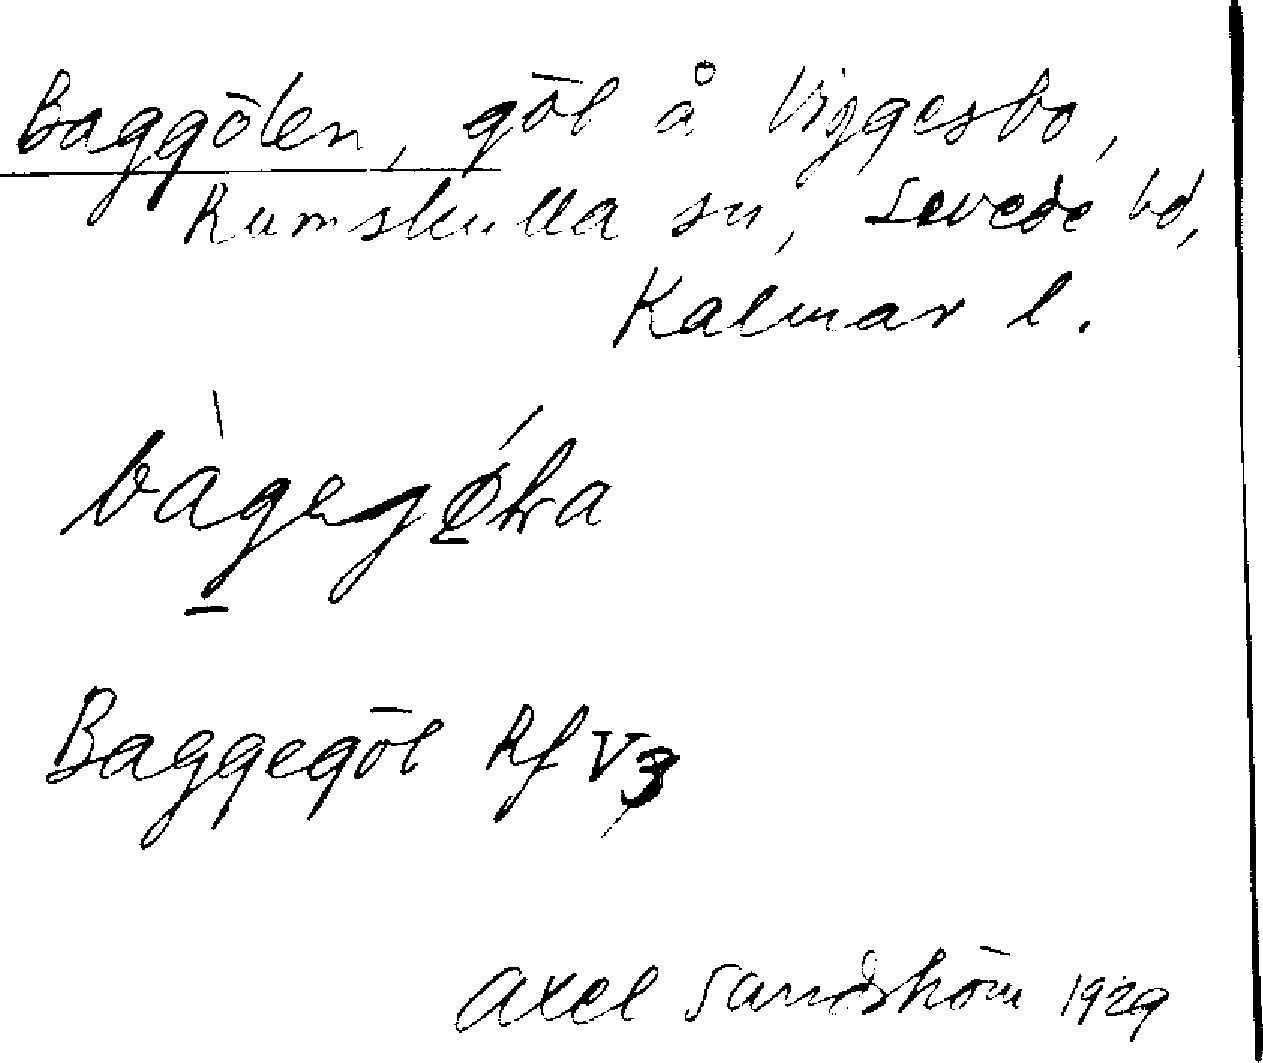 Baggölen, göl å Viggesbo,
Rumskulla sn, Sevede hd,
Kalmar l.
Baggegöl Rf V3
Axel Sandström 1929